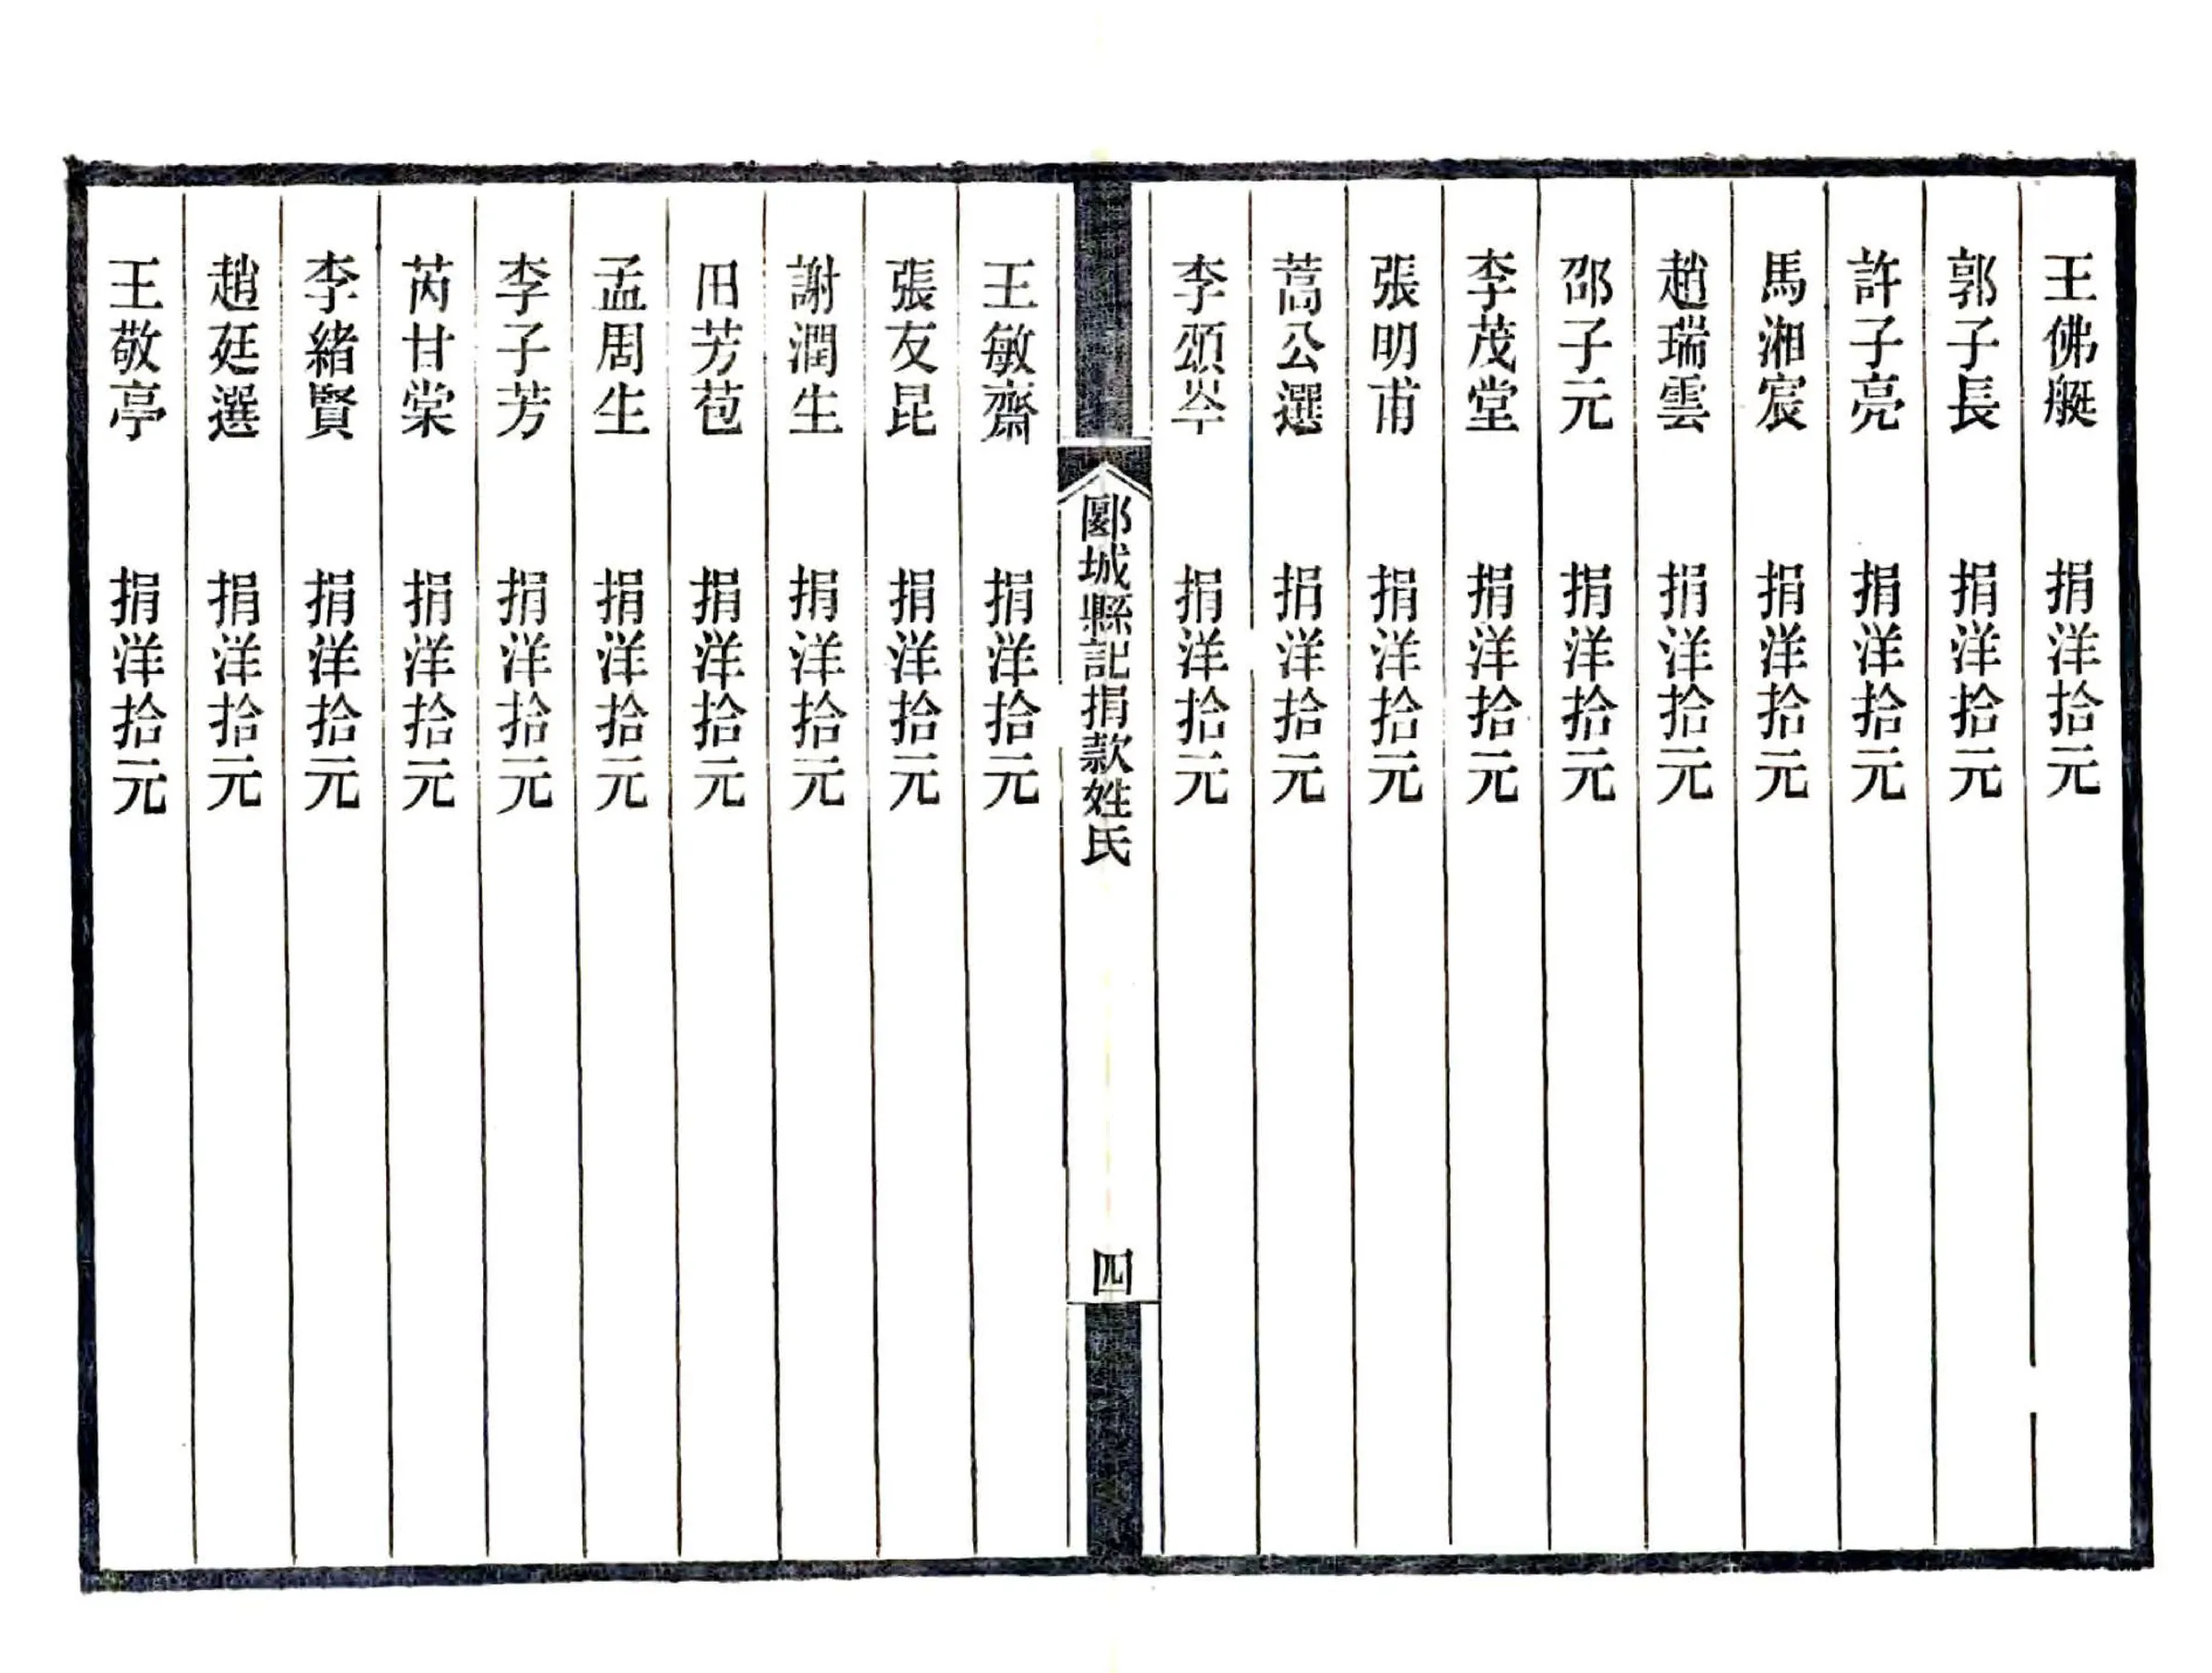 王佛艇 捐洋拾元
郭子長 捐洋拾元
許子亮 捐洋拾元
馬湘宸 捐洋拾元
趙瑞雲 捐洋拾元
邵子元 捐洋拾元
李茂堂 捐洋拾元
張明甫 捐洋拾元
蒿公選 捐洋拾元
李頌岑 捐洋拾元
郾城縣記捐款姓氏 四
王敏齋 捐洋拾元
張友昆 捐洋拾元
謝潤生 捐洋拾元
田芳苞 捐洋拾元
孟周生 捐洋拾元
李子芳 捐洋拾元
芮甘棠 捐洋拾元
李緒賢 捐洋拾元
趙廷選 捐洋拾元
王敬亭 捐洋拾元